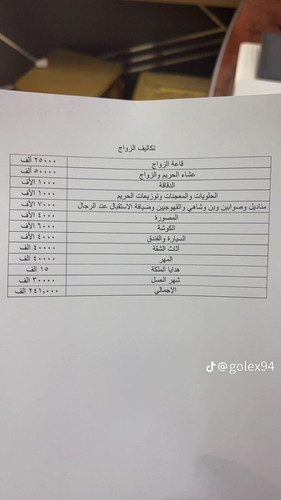 تكاليف الزواج
قاعة الزواج ٢٥٠٠٠ ألف
عشاء الحريم والزواج ٥٠٠٠٠ ألف
الدقاقة ١٠٠٠ الأف
الحلويات والمعجنات وتوزيعات الحريم ١٠٠٠ الأف
مناديل وصوابين وبن وشاهي والقهوجيين وضيافة الاستقبال عند الرجال ٧٠٠٠ الأف
المصورة ٤٠٠٠ الأف
الكوشة ٦٠٠٠ الأف
السيارة والفندق ٤٠٠٠ الأف
أثاث الشقة ٤٠٠٠٠ الف
المهر ٤٠٠٠٠ الف
هدايا الملكة ١٥ الف
شهر العسل ٣٠٠٠٠ الف
الإجمالي ٢٤١,٠٠٠ الف
@golex94